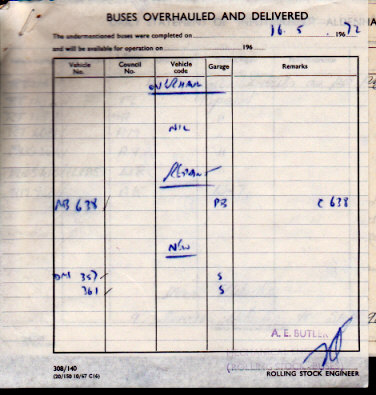 BUSES OVERHAULED AND DELIVERED
The undermentioned buses were completed on 16. 5 . 196 72
and will be available for operation on 196
Vehicle No. Council No. Vehicle code Garage Remarks
OVERHAUL
NIL
MB 638 PB C 638
NEW
DM 357 S
361 S
A. E. BUTLER
(ROLLING STOCK
308/140
(20/150 10/67 C(6) ROLLING STOCK ENGINEER